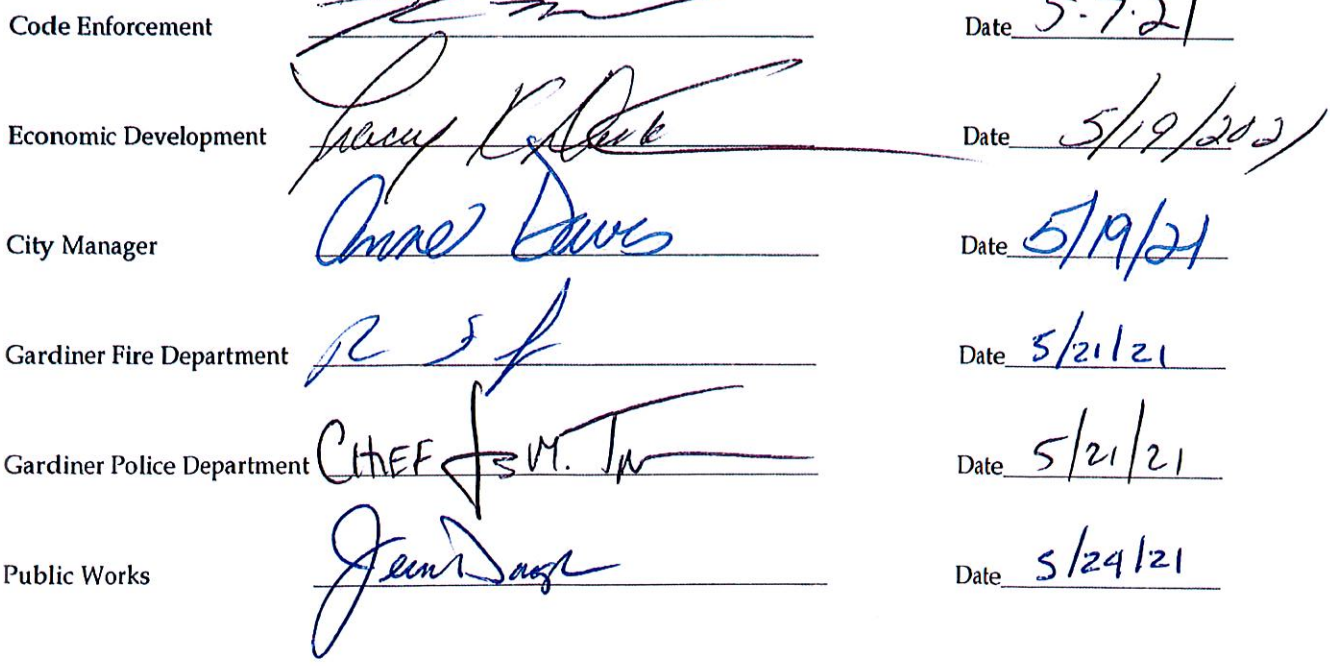 Code Enforcement Date 5.7.21
Economic Development Tracy Date 5/19/2021
City Manager Anne Davis Date 5/19/21
Gardiner Fire Department Date 5/21/21
Gardiner Police Department CHIEF Date 5/21/21
Public Works Date 5/24/21